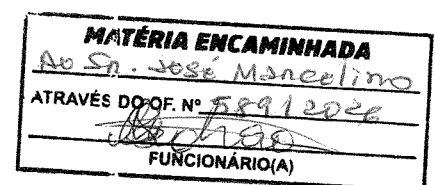 MATÉRIA ENCAMINHADA
Ao Sr. José Marcelino
ATRAVÉS DO OF. Nº 589/2026
FUNCIONÁRIO(A)